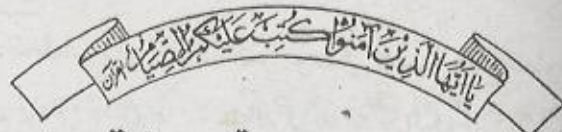 يا أيها الذين آمنوا كتب عليكم الصيام القرآن